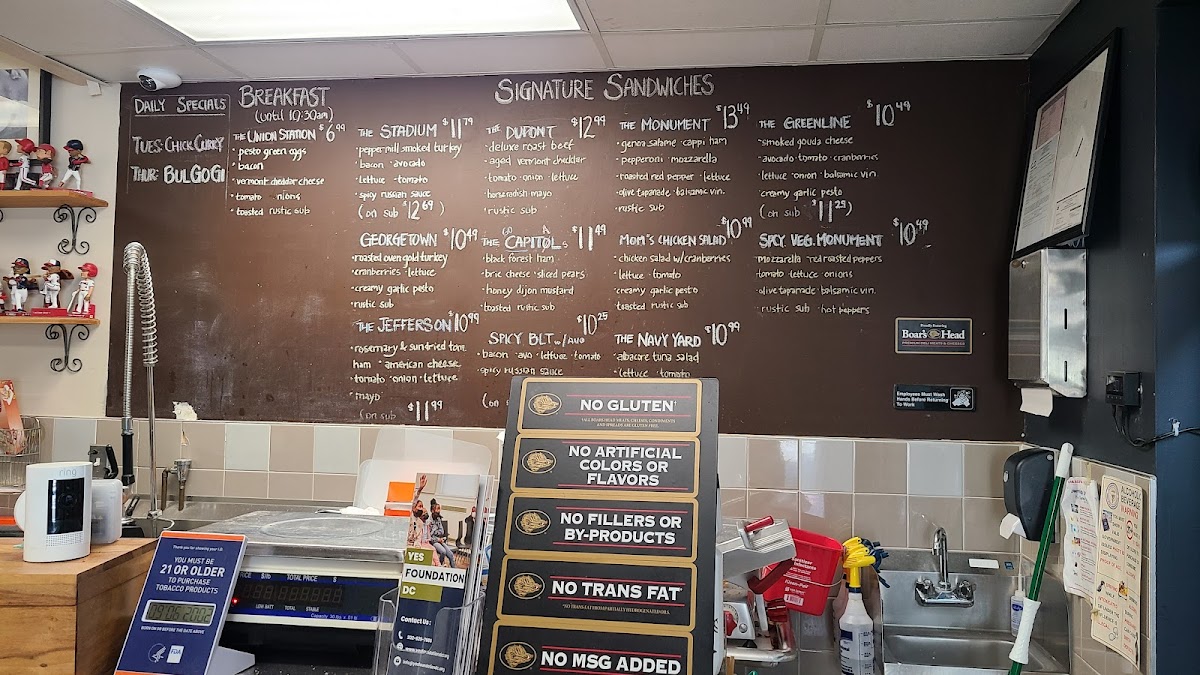 DAILY SPECIALS
TUES: CHICK.CURRY
THUR: BULGOGI
BREAKFAST
(until 10:30am)
THE UNION STATION $6.99
• pesto green eggs
• bacon
• vermont cheddar cheese
tomato • onions
• toasted rustic sub
SIGNATURE SANDWICHES
THE STADIUM $11.79
• peppermill smoked turkey
bacon • avocado
lettuce • tomato
spicy russian sauce
(on sub $12.69)
THE DUPONT $12.99
• deluxe roast beef
• aged vermont cheddar
• tomato • onion • lettuce
• horseradish mayo
• rustic sub
THE MONUMENT $13.49
• genoa salame • cappi ham
• pepperoni • mozzarella
• roasted red pepper • lettuce
• olive tapanade • balsamic vin.
• rustic sub
THE GREENLINE $10.49
• smoked gouda cheese
• avocado • tomato • cranberries
• lettuce • onion • balsamic vin.
creamy garlic pesto
(on sub $11.29)
GEORGETOWN $10.49
• roasted oven gold turkey
• cranberries • lettuce
• creamy garlic pesto
• rustic sub
THE CAPITOL $11.49
• black forest ham
• brie cheese • sliced pears
• honey dijon mustard
• toasted rustic sub
MOM'S CHICKEN SALAD $10.99
• chicken salad w/cranberries
• lettuce • tomato
• creamy garlic pesto
toasted rustic sub
SPCY. VEG. MONUMENT $10.49
mozzarella • red roasted peppers
tomato • lettuce • onions
• olive tapanade • balsamic vin.
• rustic sub • hot peppers
THE JEFFERSON $10.99
• rosemary & sundried tom.
ham • american cheese
• tomato • onion • lettuce
• mayo
(on sub $11.99
SPICY BLT w/ AVO $10.25
• bacon • avo • lettuce • tomato
• spicy russian sauce
THE NAVY YARD $10.99
• albacore tuna salad
• lettuce • tomato
Boar's Head
Employees Must Wash
Hands Before Returning
To Work
NO GLUTEN
NO ARTIFICIAL
COLORS OR
FLAVORS
NO FILLERS OR
BY-PRODUCTS
NO TRANS FAT*
NO MSG ADDED
ring
Thank you for choosing your I.D.
YOU MUST BE
21 OR OLDER
TO PURCHASE
TOBACCO PRODUCTS
09 05 2002
BORN ON OR BEFORE THE DATE ABOVE
FDA
PRICE $/lb TOTAL PRICE $
LOW BATT TOTAL STABLE
YES
FOUNDATION
DC
Contact Us:
ALCOHOL
BEVERAGE
WARNING